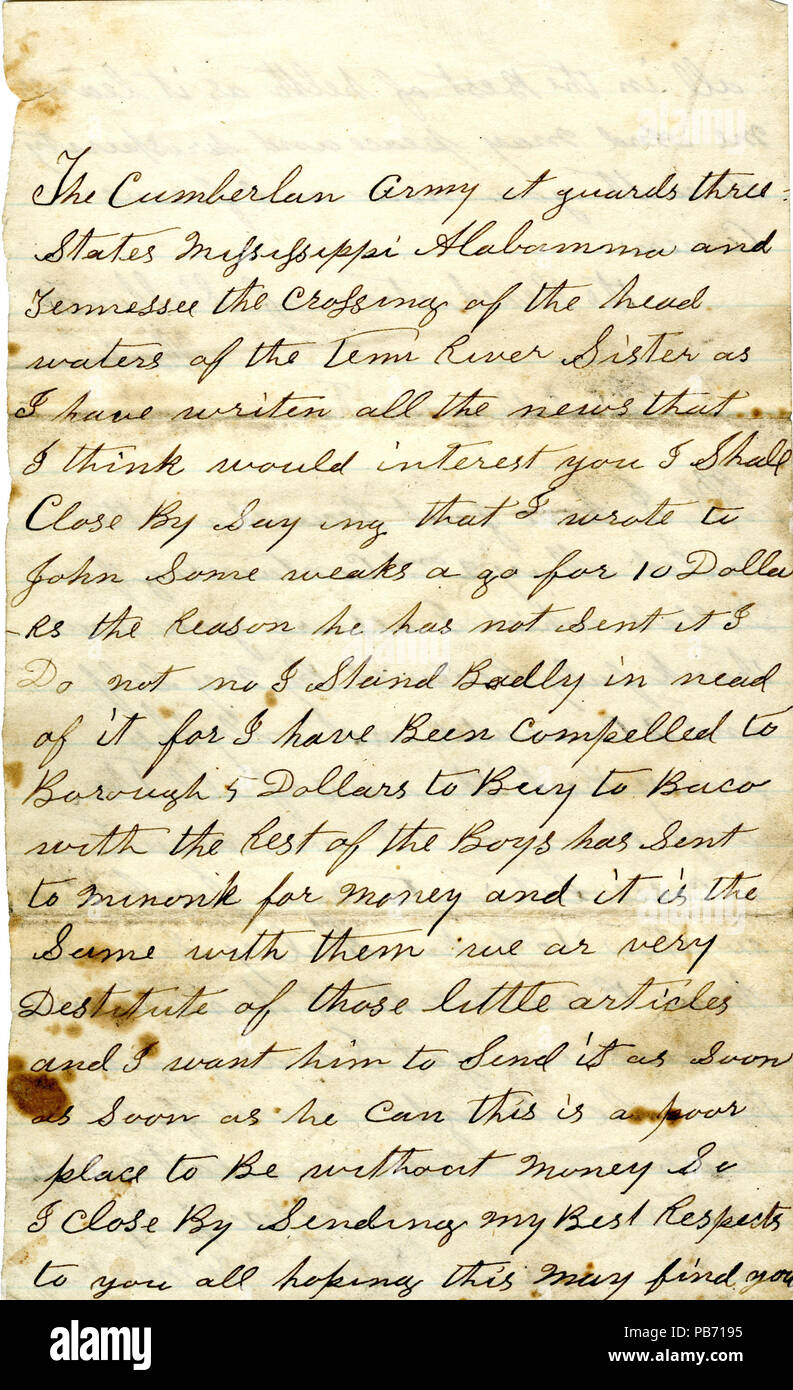 The Cumberlan Army it guards three
States Mississippi Alabamma and
Tennessee the Crossing of the head
waters of the Tenn River Sister as
I have writen all the news that
I think would interest you I Shall
Close By Say ing that I wrote to
John Some weaks a go for 10 Dolla
-Rs the Reason he has not Sent it I
Do not no I Stand Badly in nead
of it for I have Been Compelled to
Borough 5 Dollars to Buy to Baco
with the Rest of the Boys has Sent
to Minonk for Money and it is the
Same with them we ar very
Destitute of those little articles
and I want him to Send it as Soon
as Soon as he Can this is a poor
place to Be without Money So
I Close By Sending my Best Respects
to you all hoping this May find you
alamy
Image ID: PB7195
www.alamy.com